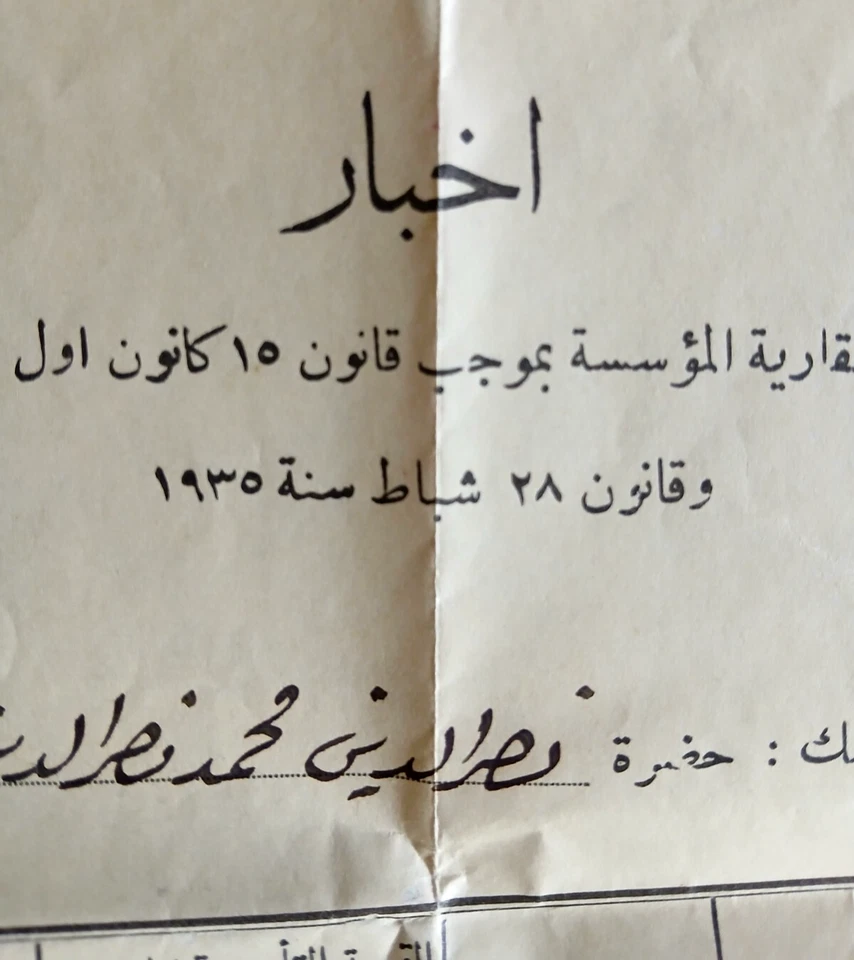 اخبار
المؤسسة بموجب قانون ١٥ كانون اول
وقانون ٢٨ شباط سنة ١٩٣٥
: حضرة نصر الدين محمد نصر الدين